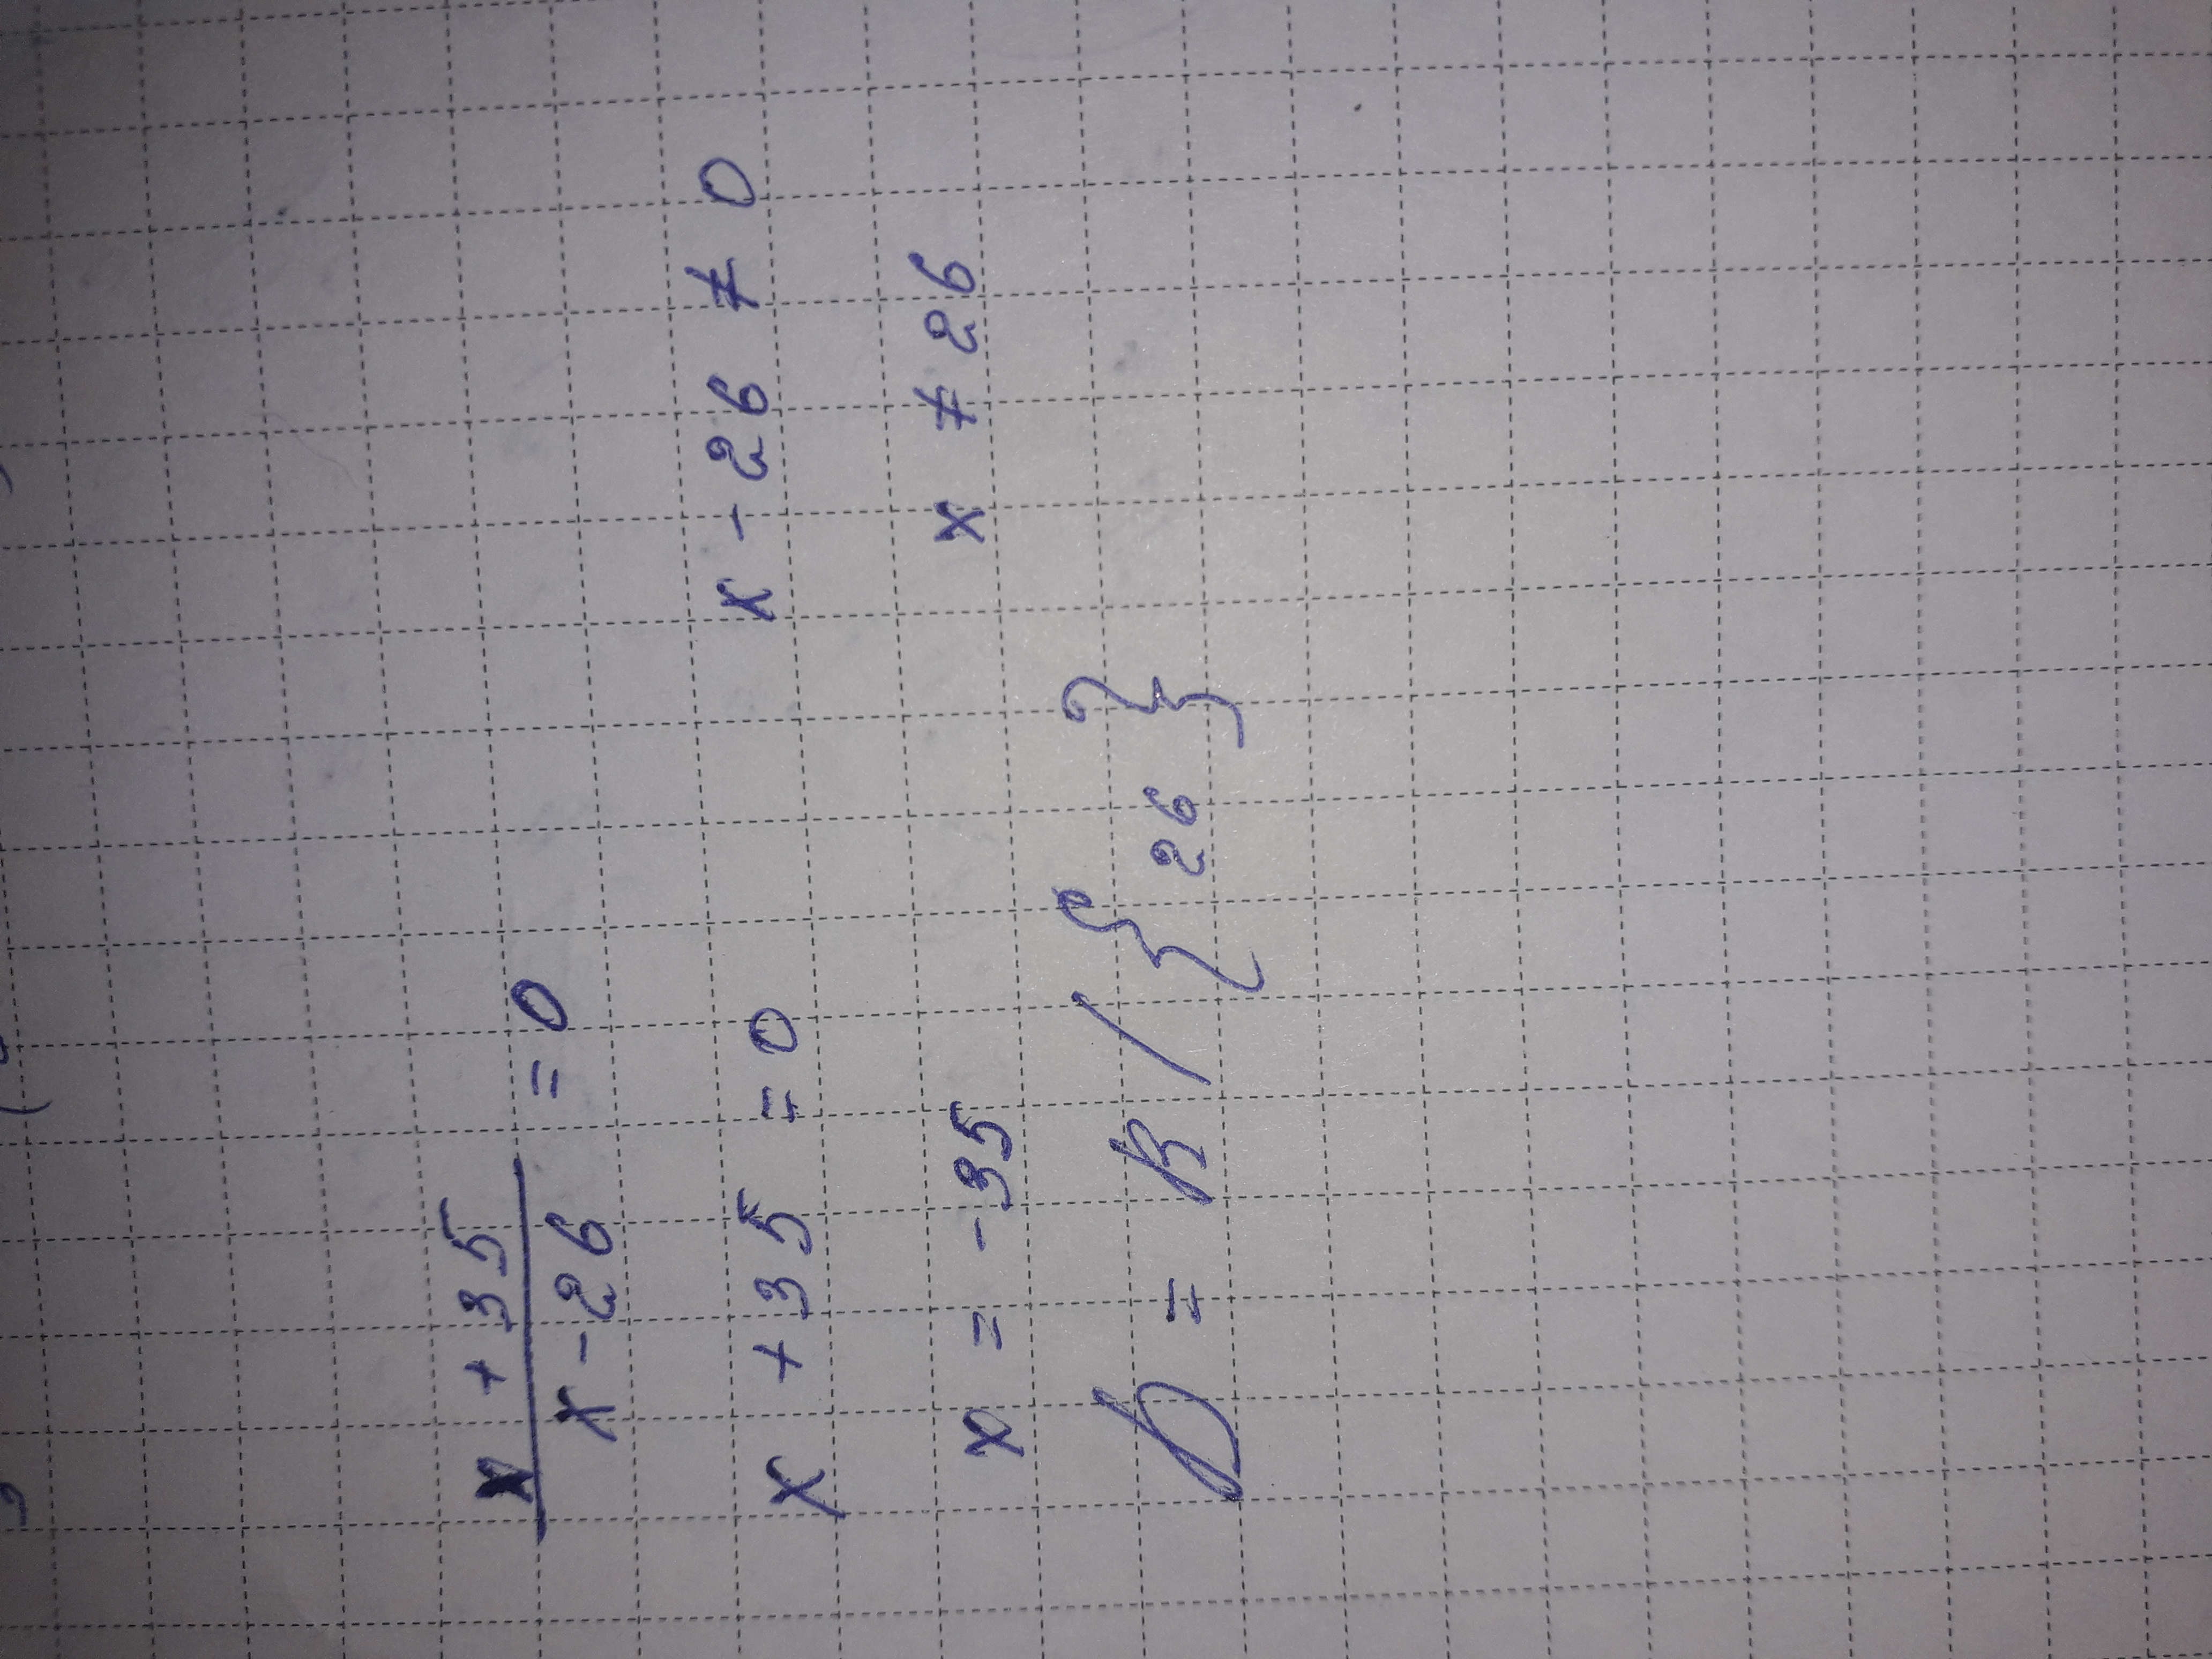 x + 35
x - 26 = 0
x + 35 = 0 x - 26 ≠ 0
x = -35 x ≠ 26
D = R / { 26 }